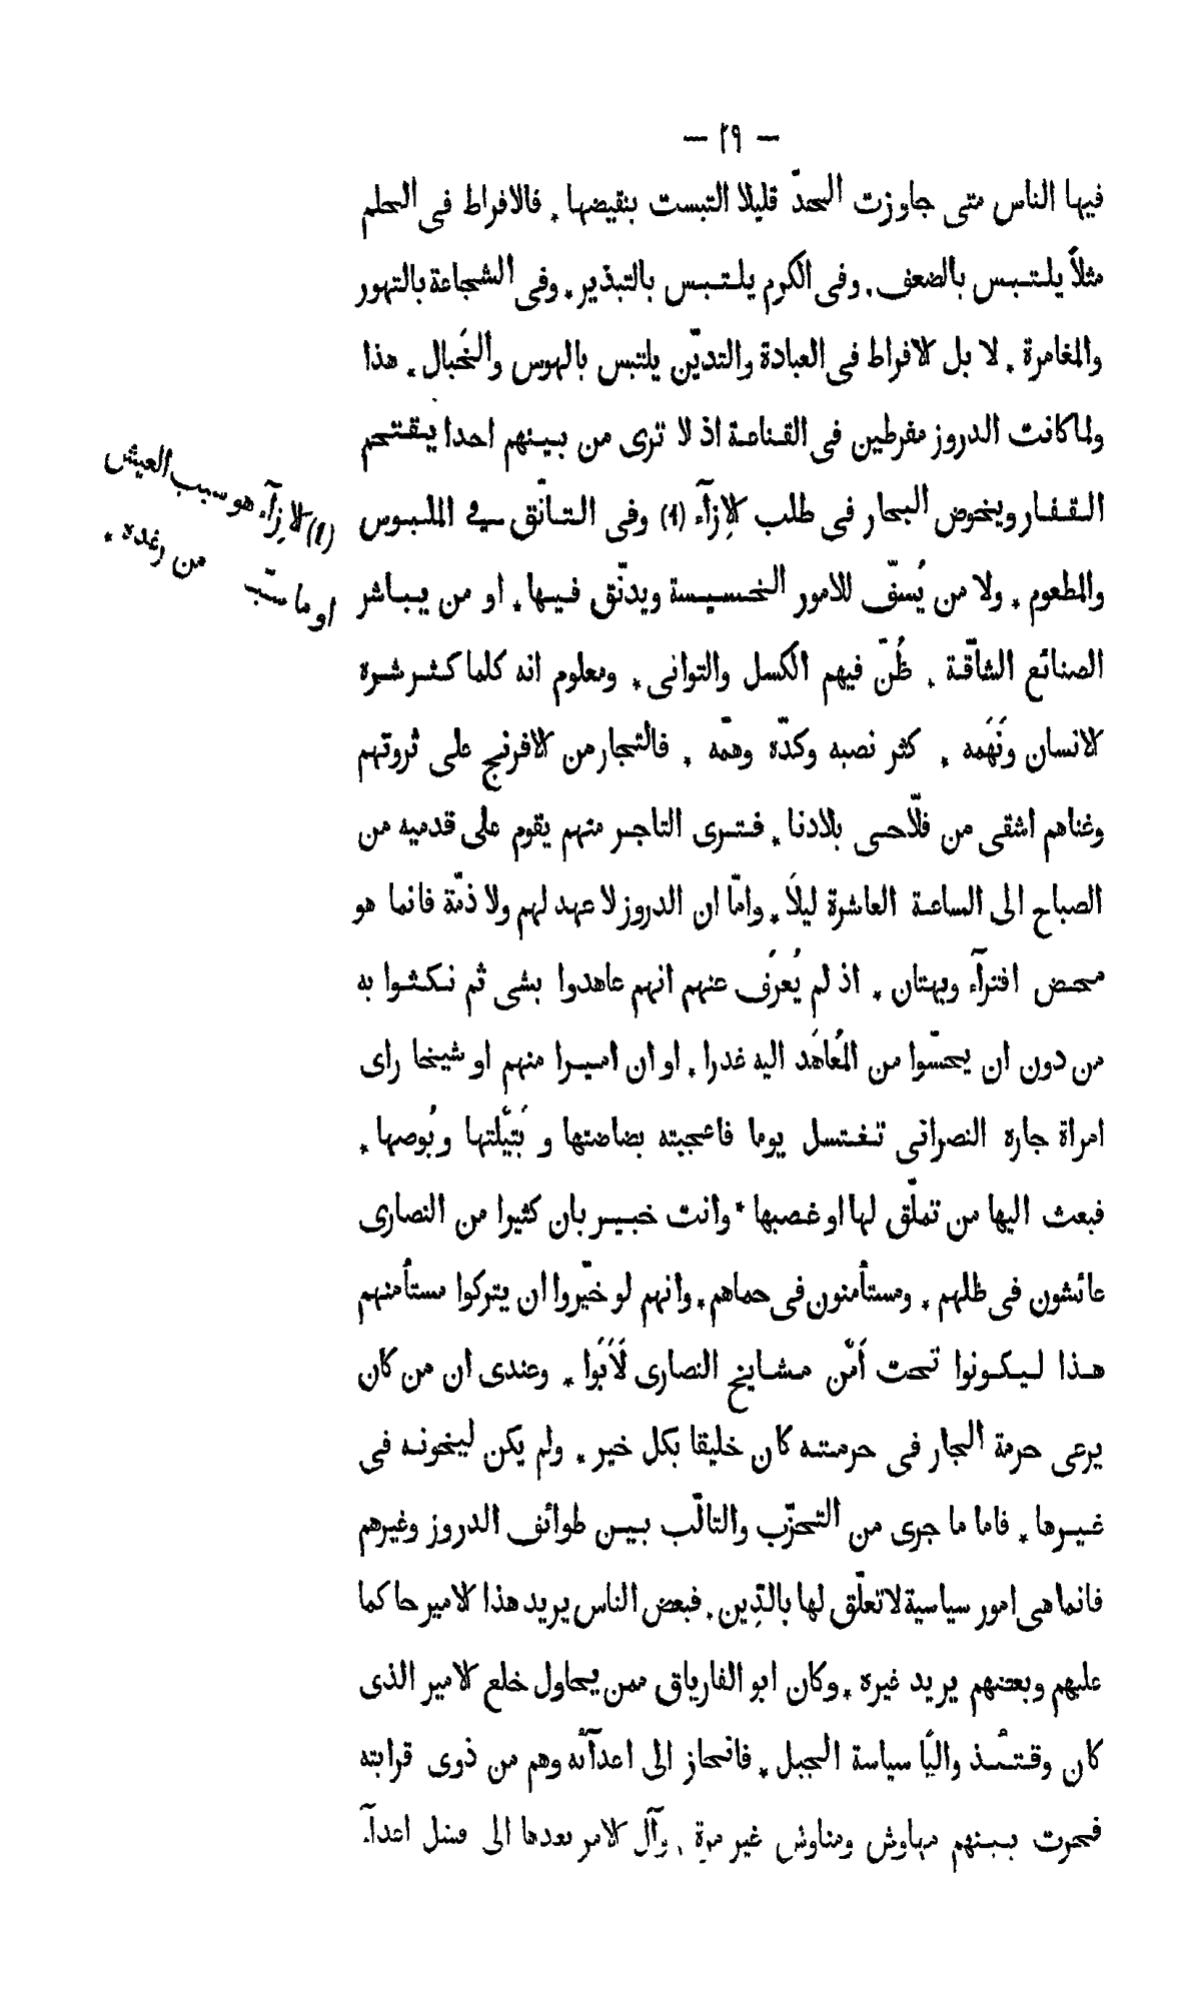 — ٢٩ —
فيها الناس متى جاوزت الحدّ قليلا التبست بنقيضها * فالافراط فى الحلم
مثلاً يلتبس بالضعف * وفى الكرم يلتبس بالتبذير * وفى الشجاعة بالتهور
والمغامرة * لا بل الافراط فى العبادة والتديّن يلتبس بالهوس والخَبال * هذا
ولما كانت الدروز مفرطين فى القناعة اذ لا ترى من بينهم احدا يقتحم
القفار ويخوض البحار فى طلب الاِزآء (١) وفى التانّق في الملبوس
والمطعوم * ولا من يُسِفّ للامور الخسيسة ويدنّق فيها * او من يباشر
الصنائع الشاقّة * ظُنّ فيهم الكسل والتوانى * ومعلوم انه كلما كثر شره
الانسان ونَهَمه * كثر نصبه وكدّه وهمّه * فالتجار من الافرنج على ثروتهم
وغناهم اشقى من فلّاحى بلادنا * فترى التاجر منهم يقوم على قدميه من
الصباح الى الساعة العاشرة ليلاً * وامّا ان الدروز لا عهد لهم ولا ذمّة فانما هو
محض افترآء وبهتان * اذ لم يُعرَف عنهم انهم عاهدوا بشى ثم نكثوا به
من دون ان يحسّوا من المُعاهَد اليه غدرا * او ان اميرا منهم او شيخا راى
امراة جاره النصرانى تغتسل يوما فاعجبته بضاضتها و بَتِيلتها وبُوصها *
فبعث اليها من تملّق لها او غصبها * وانت خبير بان كثيرا من النصارى
عائشون فى ظلهم * ومستأمنون فى حماهم * وانهم لو خيّروا ان يتركوا مستأمنهم
هذا ليكونوا تحت أمْن مشايخ النصارى لَأَبَوا * وعندى ان من كان
يرعى حرمة الجار فى حرمته كان خليقا بكل خير * ولم يكن ليخونه فى
غيرها * فاما ما جرى من التحزّب والتالّب بين طوائف الدروز وغيرهم
فانما هى امور سياسية لا تعلّق لها بالدِّين * فبعض الناس يريد هذا الامير حاكما
عليهم وبعضهم يريد غيره * وكان ابو الفارياق ممن يحاول خلع الامير الذى
كان وقتئذ واليًا سياسة الجبل * فانحاز الى اعدآئه وهم من ذوى قرابته
فجرت بينهم مهاوش ومناوش غير مرة * وآل الامر بعدها الى فشل اعدآ
(١) الاِزآء هو سبب العيش
او ما سبّب من رغده *